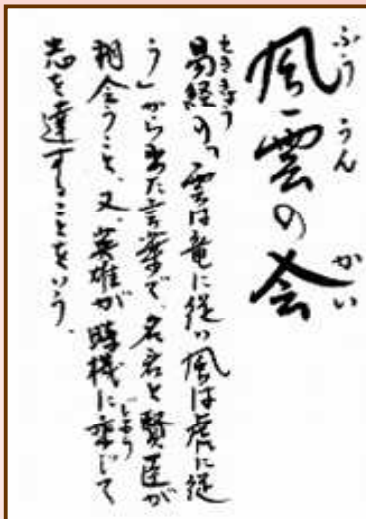 風雲の会
ふううん かい
易経の「雲は竜に従い風は虎に従
えききょう
う」から出た言葉で、名君と賢臣が
相会うこと、又、英雄が時機に乗じて
じょう
志を達することをいう。